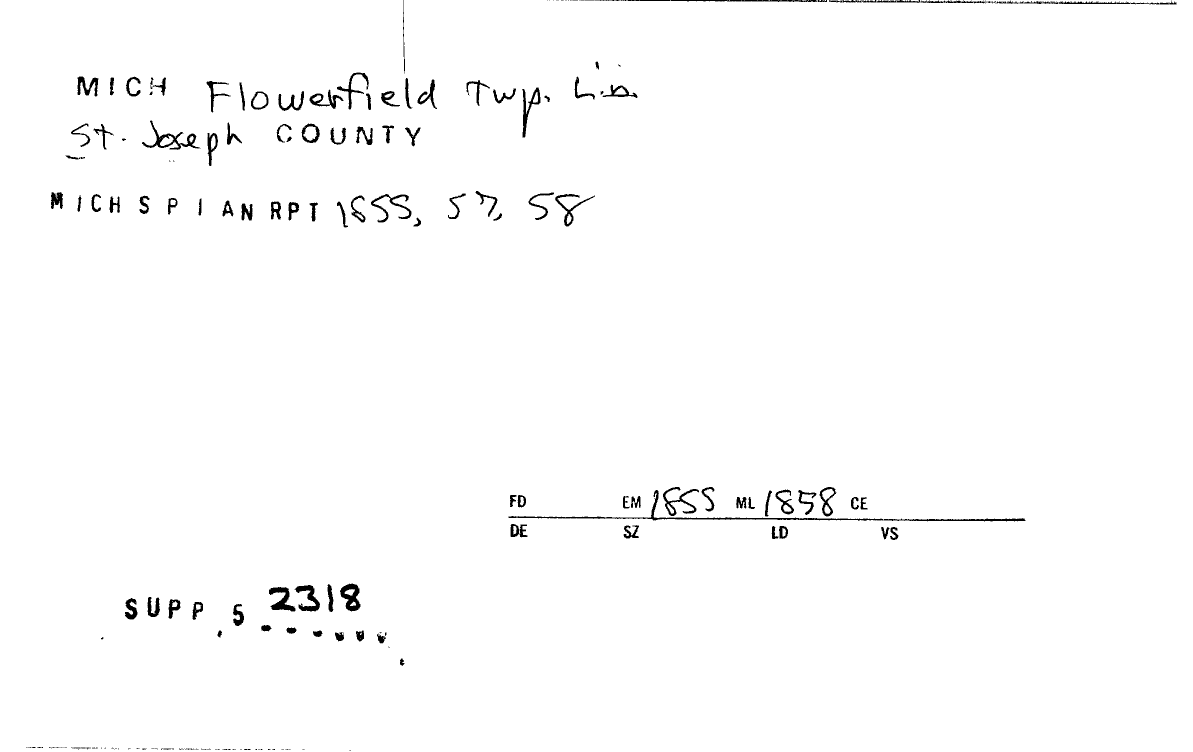 MICH Flowerfield Twp. Lib.
St. Joseph COUNTY
MICH S P I AN RPT 1855, 57, 58
FD EM 1855 ML 1858 CE
DE SZ LD VS
SUPP 5 2318